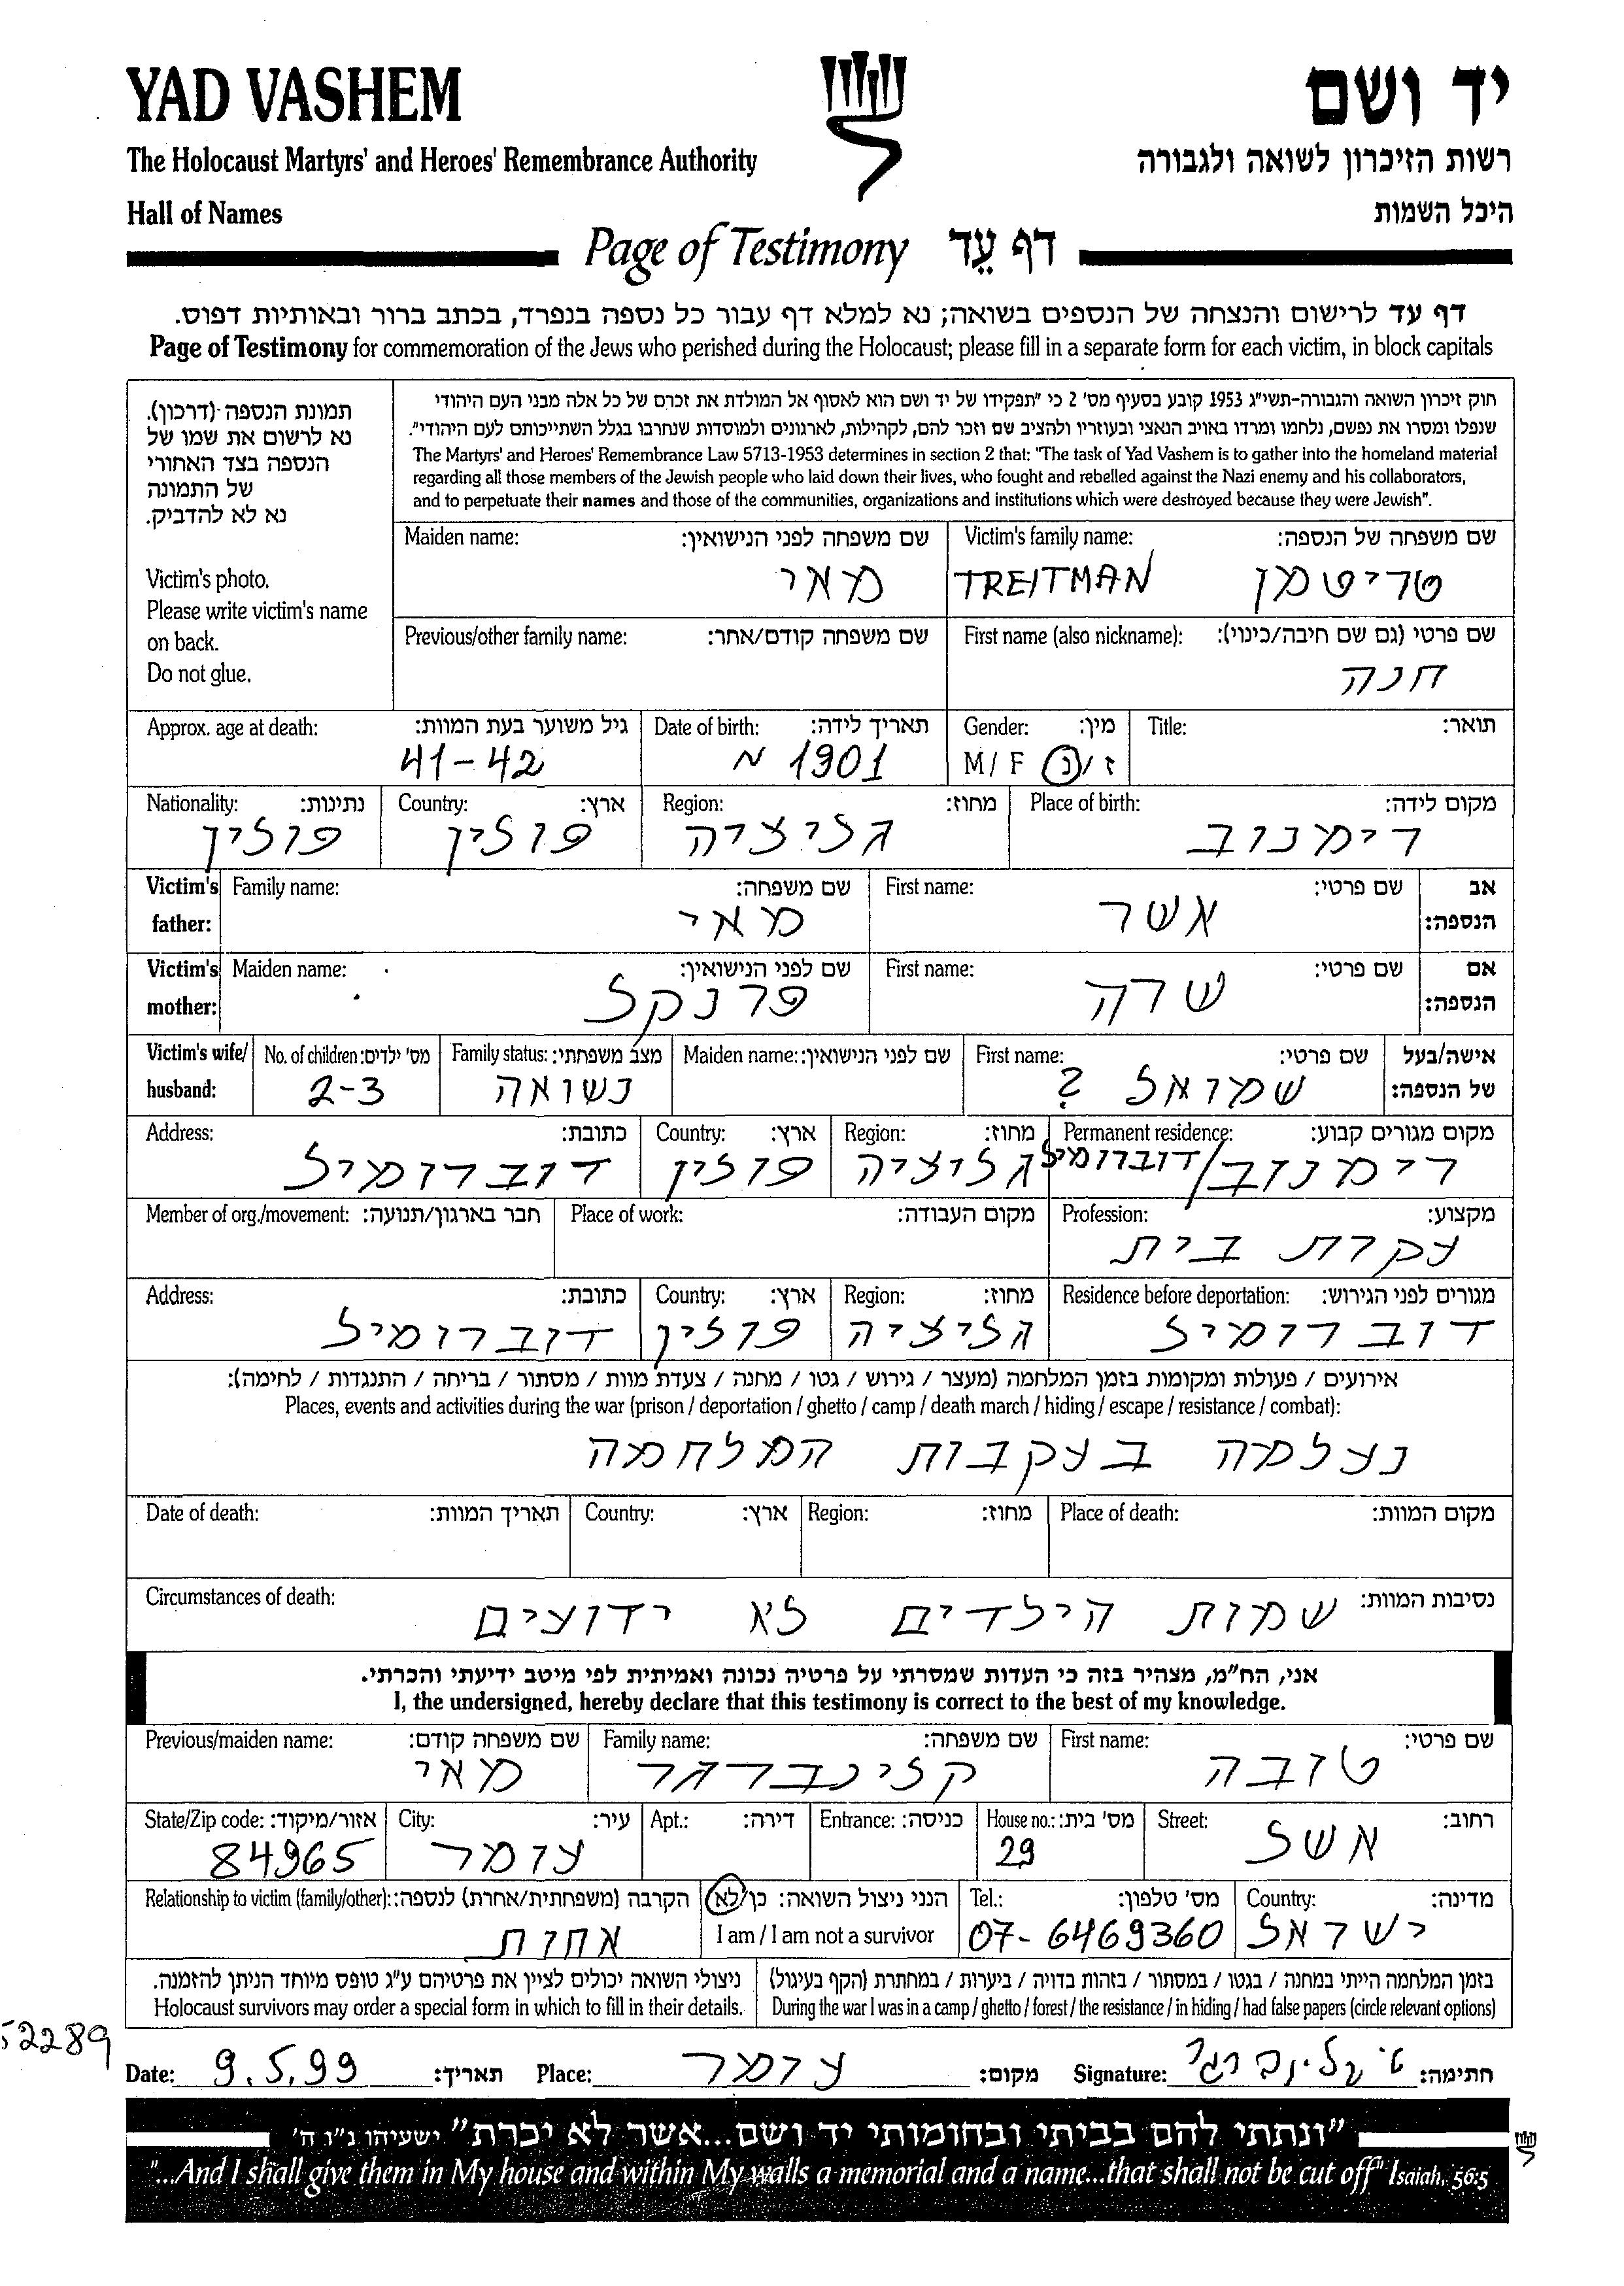 YAD VASHEM
יד ושם
The Holocaust Martyrs' and Heroes' Remembrance Authority
רשות הזיכרון לשואה ולגבורה
Hall of Names
היכל השמות
Page of Testimony דף עֵד
דף עד לרישום והנצחה של הנספים בשואה; נא למלא דף עבור כל נספה בנפרד, בכתב ברור ובאותיות דפוס.
Page of Testimony for commemoration of the Jews who perished during the Holocaust; please fill in a separate form for each victim, in block capitals
תמונת הנספה (דרכון).
נא לרשום את שמו של
הנספה בצד האחורי
של התמונה
נא לא להדביק.
Victim's photo.
Please write victim's name
on back.
Do not glue.
חוק זיכרון השואה והגבורה-תשי"ג 1953 קובע בסעיף מס' 2 כי "תפקידו של יד ושם הוא לאסוף אל המולדת את זכרם של כל אלה מבני העם היהודי
שנפלו ומסרו את נפשם, נלחמו ומרדו באויב הנאצי ובעוזריו ולהציב שם וזכר להם, לקהילות, לארגונים ולמוסדות שנחרבו בגלל השתייכותם לעם היהודי".
The Martyrs' and Heroes' Remembrance Law 5713-1953 determines in section 2 that: "The task of Yad Vashem is to gather into the homeland material
regarding all those members of the Jewish people who laid down their lives, who fought and rebelled against the Nazi enemy and his collaborators,
and to perpetuate their names and those of the communities, organizations and institutions which were destroyed because they were Jewish".
Victim's family name: שם משפחה של הנספה:
טרייטמן TREITMAN
Maiden name: שם משפחה לפני הנישואין:
מאי
First name (also nickname): שם פרטי (גם שם חיבה/כינוי):
חנה
Previous/other family name: שם משפחה קודם/אחר:
Title: תואר:
Gender: מין:
M / F ז / נ
Date of birth: תאריך לידה:
1901 ~
Approx. age at death: גיל משוער בעת המוות:
41-42
Place of birth: מקום לידה:
דימנוב
Region: מחוז:
גליציה
Country: ארץ:
פולין
Nationality: נתינות:
פולין
Victim's father: אב הנספה:
First name: שם פרטי:
אשר
Family name: שם משפחה:
מאי
Victim's mother: אם הנספה:
First name: שם פרטי:
שרה
Maiden name: שם לפני הנישואין:
פרנקל
Victim's wife/ husband: אישה/בעל של הנספה:
First name: שם פרטי:
שמואל ?
Maiden name: שם לפני הנישואין:
Family status: מצב משפחתי:
נשואה
No. of children: מס' ילדים:
2-3
Permanent residence: מקום מגורים קבוע:
דימנוב/דוברומיל
Region: מחוז:
גליציה
Country: ארץ:
פולין
Address: כתובת:
דוברומיל
Profession: מקצוע:
עקרת בית
Place of work: מקום העבודה:
Member of org./movement: חבר בארגון/תנועה:
Residence before deportation: מגורים לפני הגירוש:
דוברומיל
Region: מחוז:
גליציה
Country: ארץ:
פולין
Address: כתובת:
דוברומיל
אירועים / פעולות ומקומות בזמן המלחמה (מעצר / גירוש / גטו / מחנה / צעדת מוות / מסתור / בריחה / התנגדות / לחימה):
Places, events and activities during the war (prison / deportation / ghetto / camp / death march / hiding / escape / resistance / combat):
נעלמה בעקבות המלחמה
Place of death: מקום המוות:
Region: מחוז:
Country: ארץ:
Date of death: תאריך המוות:
Circumstances of death: נסיבות המוות:
שמות הילדים לא ידועים
אני, הח"מ, מצהיר בזה כי העדות שמסרתי על פרטיה נכונה ואמיתית לפי מיטב ידיעתי והכרתי.
I, the undersigned, hereby declare that this testimony is correct to the best of my knowledge.
First name: שם פרטי:
טובה
Family name: שם משפחה:
קלינברגר
Previous/maiden name: שם משפחה קודם:
מאי
Street: רחוב:
אשל
House no.: מס' בית:
29
Entrance: כניסה:
Apt.: דירה:
City: עיר:
עומר
State/Zip code: אזור/מיקוד:
84965
Country: מדינה:
ישראל
Tel.: מס' טלפון:
07-6469360
הנני ניצול השואה: כן/לא
I am / I am not a survivor
Relationship to victim (family/other): הקרבה (משפחתית/אחרת) לנספה:
אחות
בזמן המלחמה הייתי במחנה / בגטו / במסתור / בזהות בדויה / ביערות / במחתרת (הקף בעיגול)
During the war I was in a camp / ghetto / forest / the resistance / in hiding / had false papers (circle relevant options)
ניצולי השואה יכולים לציין את פרטיהם ע"ג טופס מיוחד הניתן להזמנה.
Holocaust survivors may order a special form in which to fill in their details.
52289
Date: 9.5.99 תאריך: Place: עומר מקום: Signature: ט. קלינברגר חתימה:
"ונתתי להם בביתי ובחומותי יד ושם...אשר לא יכרת" ישעיהו נ"ו ה'
"...And I shall give them in My house and within My walls a memorial and a name...that shall not be cut off" Isaiah, 56:5